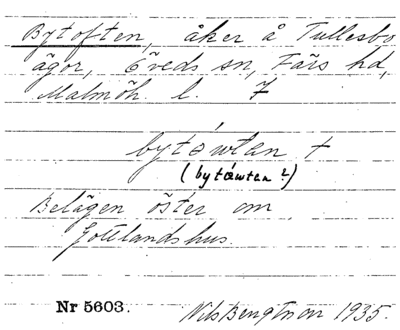 Bytoften, åker å Tullesbo
ägor, Öveds sn, Färs hd,
Malmöh. l. 7
bytáwtan +
(bytǿwtan ?)
Belägen öster om
Gottlandshus.
Nr 5603. Nils Bengtsson 1935.